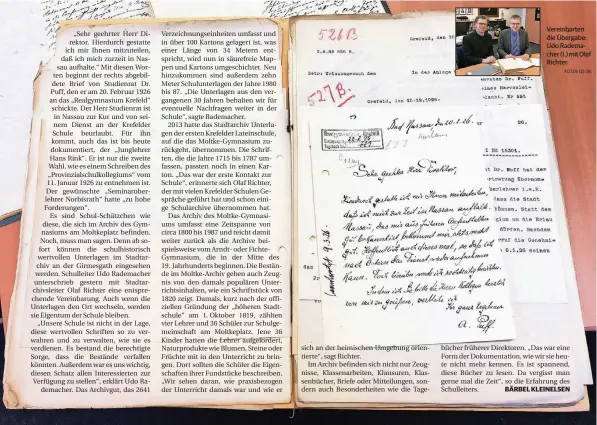 „Sehr geehrter Herr Di-
rektor. Hierdurch gestatte
ich mir Ihnen mitzuteilen,
daß ich mich zurzeit in Nas-
sau aufhalte." Mit diesen Wor-
ten beginnt der rechts abgebil-
dete Brief von Studienrat Dr.
Puff, den er am 20. Februar 1926
an das „Realgymnasium Krefeld"
schickte. Der Herr Studienrat ist
in Nassau zur Kur und von sei-
nem Dienst an der Krefelder
Schule beurlaubt. Für ihn
kommt, auch das ist bis heute
dokumentiert, der „Junglehrer
Hans Rink". Er ist nur die zweite
Wahl, wie es einem Schreiben des
„Provinzialschulkollegiums" vom
11. Januar 1926 zu entnehmen ist.
Der gewünschte „Seminarober-
lehrer Norbisrath" hatte „zu hohe
Forderungen".
Es sind Schul-Schätzchen wie
diese, die sich im Archiv des Gym-
nasiums am Moltkeplatz befinden.
Noch, muss man sagen. Denn ab so-
fort können die schulhistorisch
wertvollen Unterlagen im Stadtar-
chiv an der Girmesgath eingesehen
werden. Schulleiter Udo Rademacher
unterschrieb gestern mit Stadtar-
chivsleiter Olaf Richter eine entspre-
chende Vereinbarung. Auch wenn die
Unterlagen den Ort wechseln, werden
sie Eigentum der Schule bleiben.
„Unsere Schule ist nicht in der Lage,
diese wertvollen Schriften so zu ver-
wahren und zu verwalten, wie sie es
verdienen. Es bestand die berechtigte
Sorge, dass die Bestände verfallen
könnten. Außerdem war es uns wichtig,
diesen Schatz allen Interessierten zur
Verfügung zu stellen", erklärt Udo Ra-
demacher. Das Archivgut, das 2641
Verzeichnungseinheiten umfasst und
in über 100 Kartons gelagert ist, was
einer Länge von 34 Metern ent-
spricht, wurde in neue säurefreie Map-
pen und Kartons umgeschichtet. Neu
hinzukommen sind außerdem zehn
Meter Schulunterlagen der Jahre 1980
bis 87. „Die Unterlagen aus den ver-
gangenen 30 Jahren behalten wir für
eventuelle Nachfragen weiter in der
Schule", sagte Rademacher.
2013 hatte das Stadtarchiv Unterla-
gen der ersten Krefelder Lateinschule,
auf die das Moltke-Gymnasium zu-
rückgeht, übernommen. Die Schrif-
ten, die die Jahre 1715 bis 1787 um-
fassen, passten noch in einen Kar-
ton. „Das war der erste Kontakt zur
Schule", erinnerte sich Olaf Richter,
der mit vielen Krefelder Schulen Ge-
spräche geführt hat und schon eini-
ge Schularchive übernommen hat.
Das Archiv des Moltke-Gymnasi-
ums umfasst eine Zeitspanne von
circa 1800 bis 1987 und reicht damit
weiter zurück als die Archive bei-
spielsweise vom Arndt- oder Fichte-
Gymnasium, die in der Mitte des
19. Jahrhunderts beginnen. Die Bestän-
de im Moltke-Archiv gehen auch Zeug-
nis von den damals populären Unter-
richtsinhalten, wie ein Schriftstück von
1820 zeigt. Damals, kurz nach der offi-
ziellen Gründung der „höheren Stadt-
schule" am 1. Oktober 1819, zählten
vier Lehrer und 36 Schüler zur Schulge-
meinschaft am Moltkeplatz. Jene 36
Kinder hatten die Lehrer aufgefordert,
Naturprodukte wie Blumen, Steine oder
Früchte mit in den Unterricht zu brin-
gen. Dort sollten die Schüler die Eigen-
schaften ihrer Fundstücke beschreiben.
„Wir sehen daran, wie praxisbezogen
der Unterricht damals war und wie er
sich an der heimischen Umgebung orien-
tierte", sagt Richter.
Im Archiv befinden sich nicht nur Zeug-
nisse, Klassenarbeiten, Klausuren, Klas-
senbücher, Briefe oder Mitteilungen, son-
dern auch Besonderheiten wie die Tage-
bücher früherer Direktoren. „Das war eine
Form der Dokumentation, wie wir sie heu-
te nicht mehr kennen. Es ist spannend,
diese Bücher zu lesen. Da vergisst man
gerne mal die Zeit", so die Erfahrung des
Schulleiters.
BÄRBEL KLEINELSEN
Vereinbarten
die Übergabe:
Udo Radema-
cher (l.) mit Olaf
Richter.
526 B
Crefeld, den
In der Anlage
527 B.
Crefeld, den
Bad Nassau, den 20.2.26.
Sehr geehrter Herr Direktor,
Hierdurch gestatte ich mir Ihnen mitzuteilen,
daß ich mich zur Zeit in Nassau aufhalte.
A. Puff.